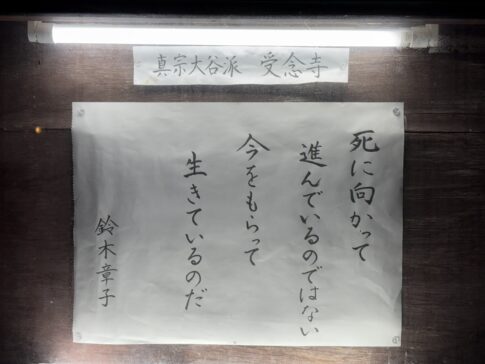 真宗大谷派 受念寺
死に向かって
進んでいるのではない
今をもらって
生きているのだ
鈴木章子